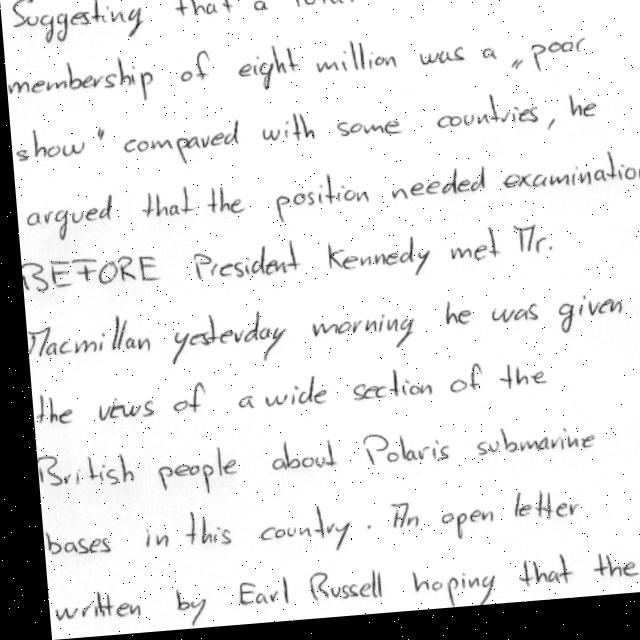 Suggesting that a
membership of eight million was a „poor
show" compared with some countries, he
argued that the position needed examination
BEFORE President Kennedy met Mr.
Macmillan yesterday morning he was given
the views of a wide section of the
British people about Polaris submarine
bases in this country. An open letter
written by Earl Russell hoping that the